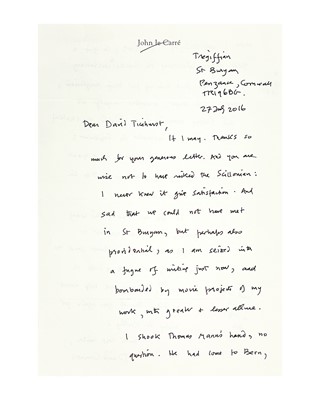 John le Carré
Tregiffian
St Buryan
Penzance, Cornwall
TR19 6BG.
27 July 2016
Dear David
It I may. Thanks so
much for your generous letter. And you are
wise not to have risked the Scillonian:
I never knew it give satisfaction. And
sad that we could not have met
in St Buryan, but perhaps also
providential, as I am seized with
a fugue of writing just now, and
bombarded by movie projects of my
work, with greater + lesser allure.
I shook Thomas Mann's hand, no
question. He had come to Bern,